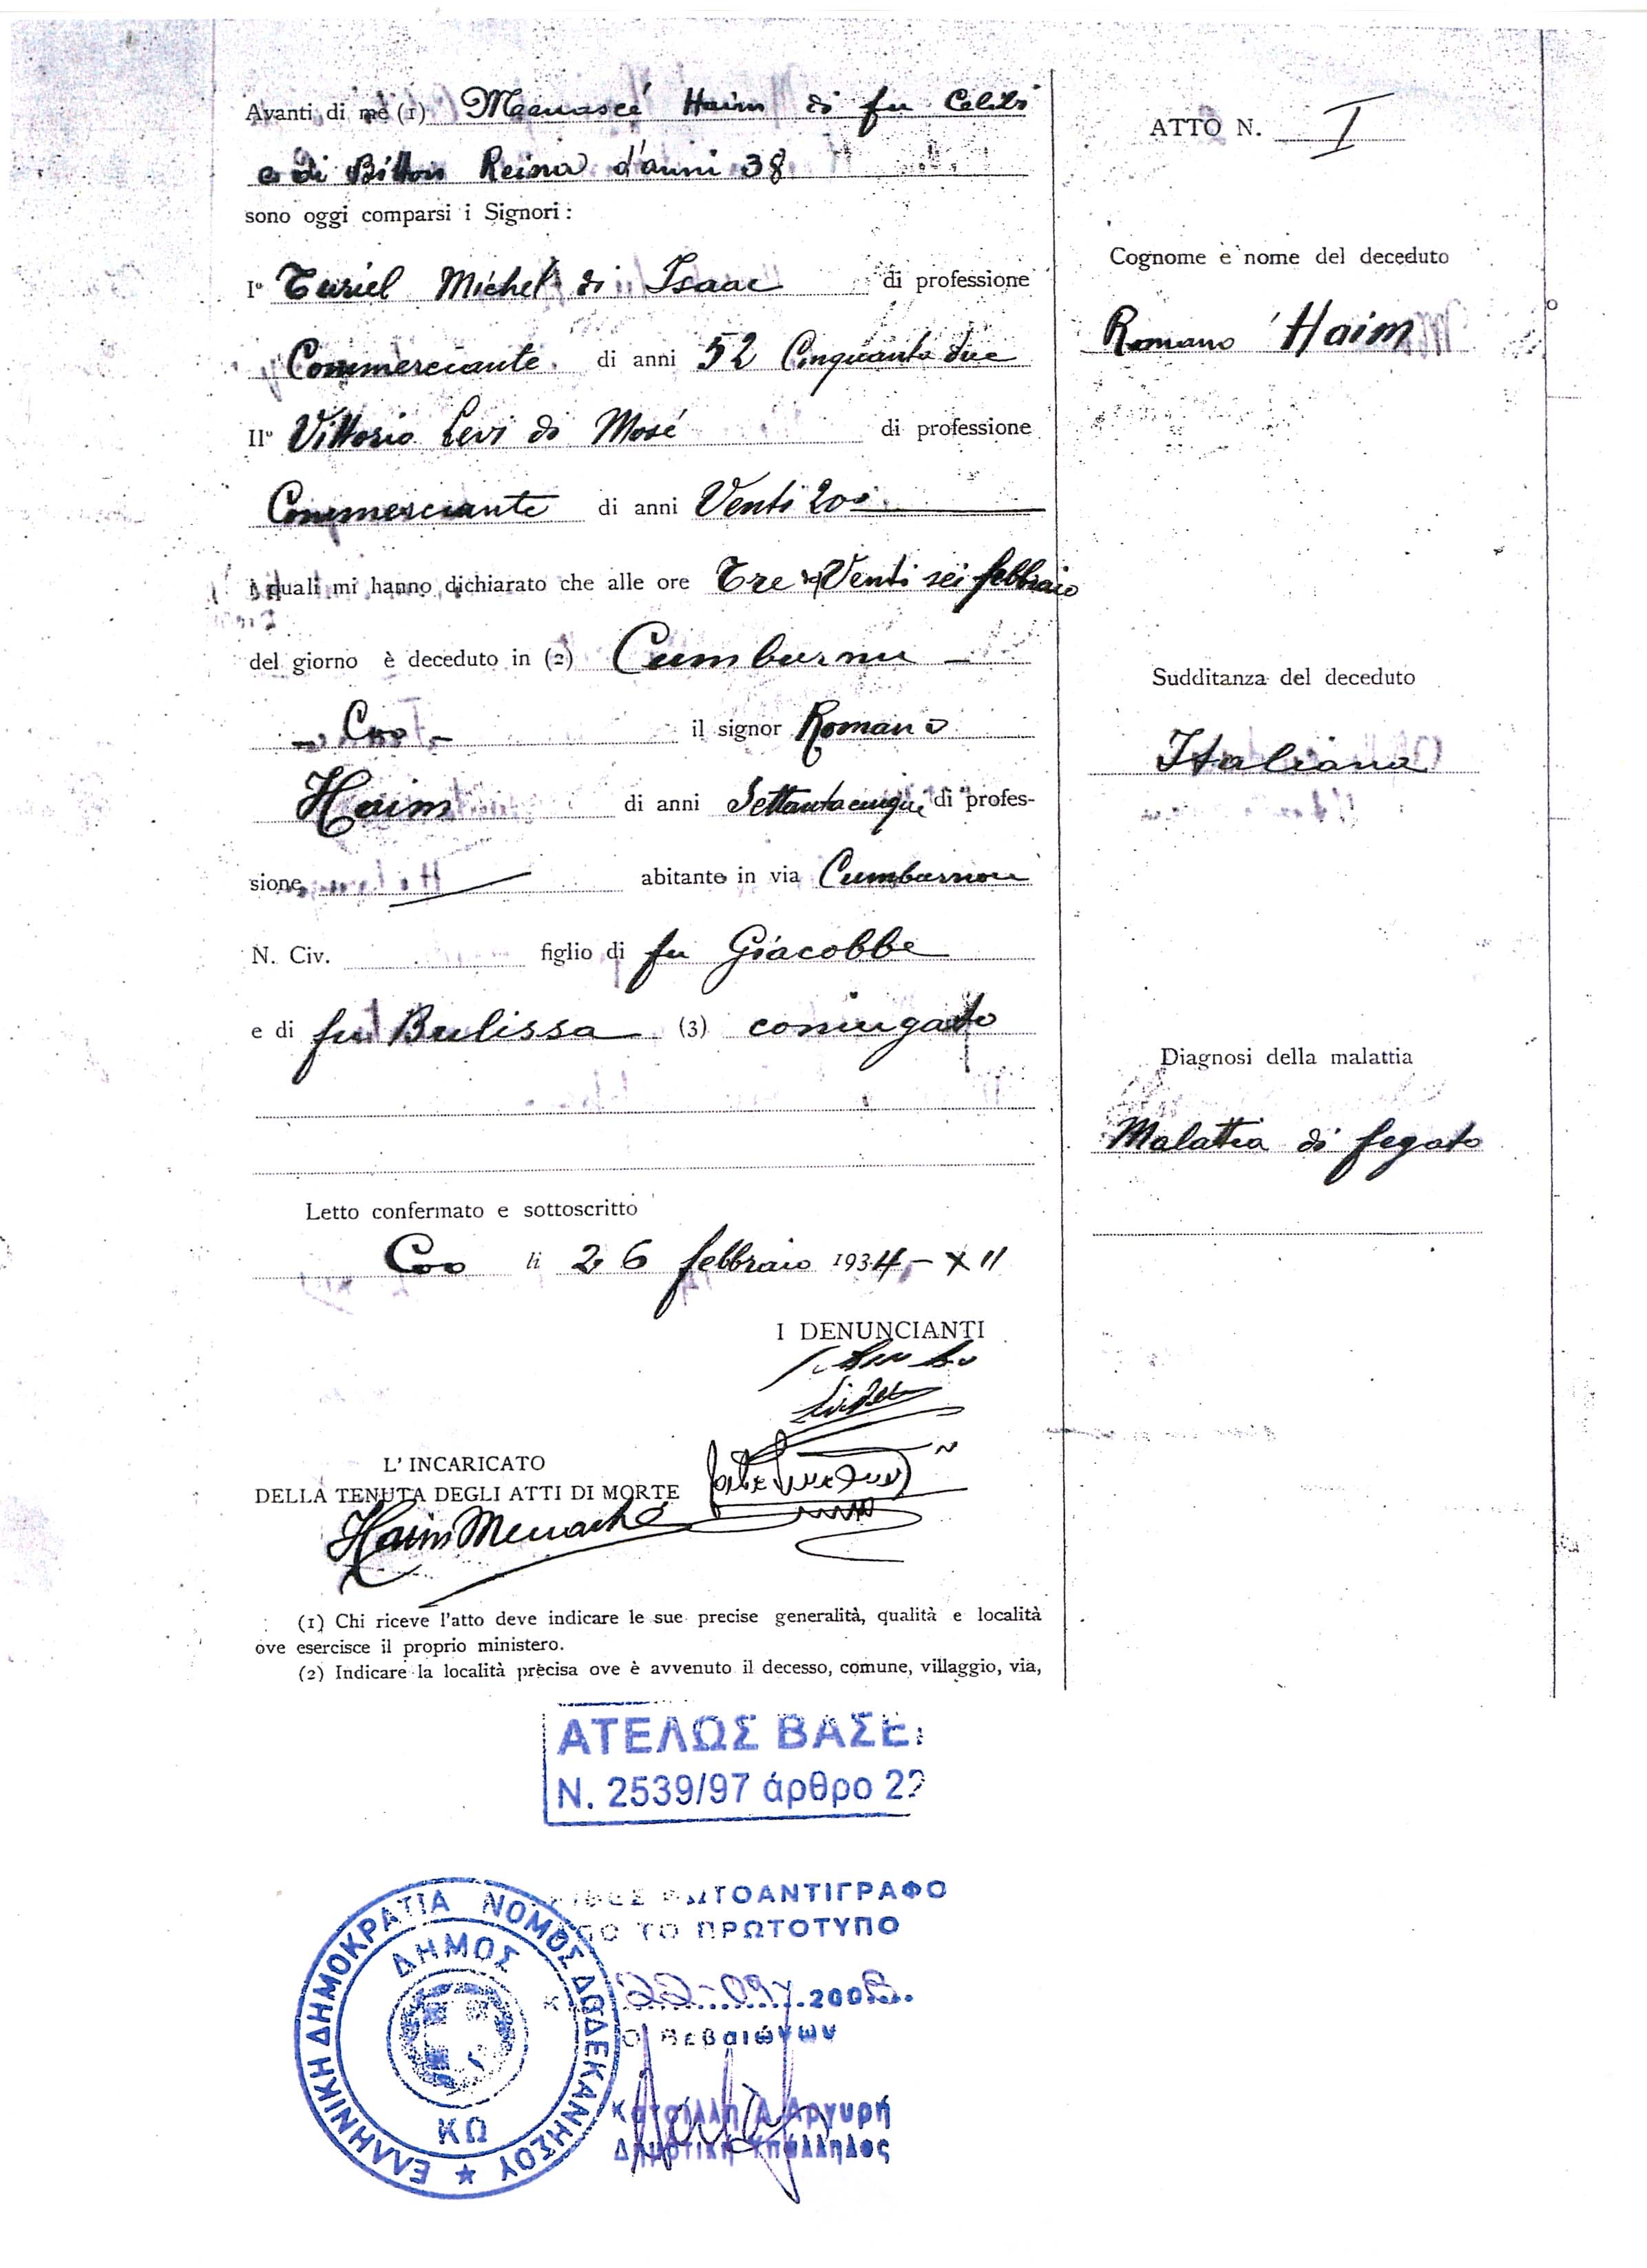 Avanti di me (1) Menascé Haim di fu Celebi
e di Bitton Reina d'anni 38
sono oggi comparsi i Signori :
I° Turiel Michel di Isaac di professione
Commerciante di anni 52 Cinquanta due
II° Vittorio Levi di Mosé di professione
Commerciante di anni Venti 20
i quali mi hanno dichiarato che alle ore Tre Venti sei febbraio
del giorno è deceduto in (2) Cumburnu —
— Coo — il signor Romano
Haim di anni Settantacinque di profes-
sione abitante in via Cumburnou
N. Civ. figlio di fu Giacobbe
e di fu Bulissa (3) coniugato
Letto confermato e sottoscritto
Coo li 26 febbraio 1934 - XII
I DENUNCIANTI
L' INCARICATO
DELLA TENUTA DEGLI ATTI DI MORTE
Haim Menaché
(1) Chi riceve l'atto deve indicare le sue precise generalità, qualità e località
ove esercisce il proprio ministero.
(2) Indicare la località precisa ove è avvenuto il decesso, comune, villaggio, via,
ATTO N. I
Cognome e nome del deceduto
Romano Haim
Sudditanza del deceduto
Italiana
Diagnosi della malattia
Malattia di fegato
ΑΤΕΛΩΣ ΒΑΣΕ
Ν. 2539/97 άρθρο 22
ΦΩΤΟΑΝΤΙΓΡΑΦΟ
ΤΟ ΠΡΩΤΟΤΥΠΟ
22-09 2008
Ο Βεβαιώνων
Κατσίλλη Α. Αργυρή
Δημοτική Υπάλληλος
ΕΛΛΗΝΙΚΗ ΔΗΜΟΚΡΑΤΙΑ ΝΟΜΟΣ ΔΩΔΕΚΑΝΗΣΟΥ
ΔΗΜΟΣ
ΚΩ